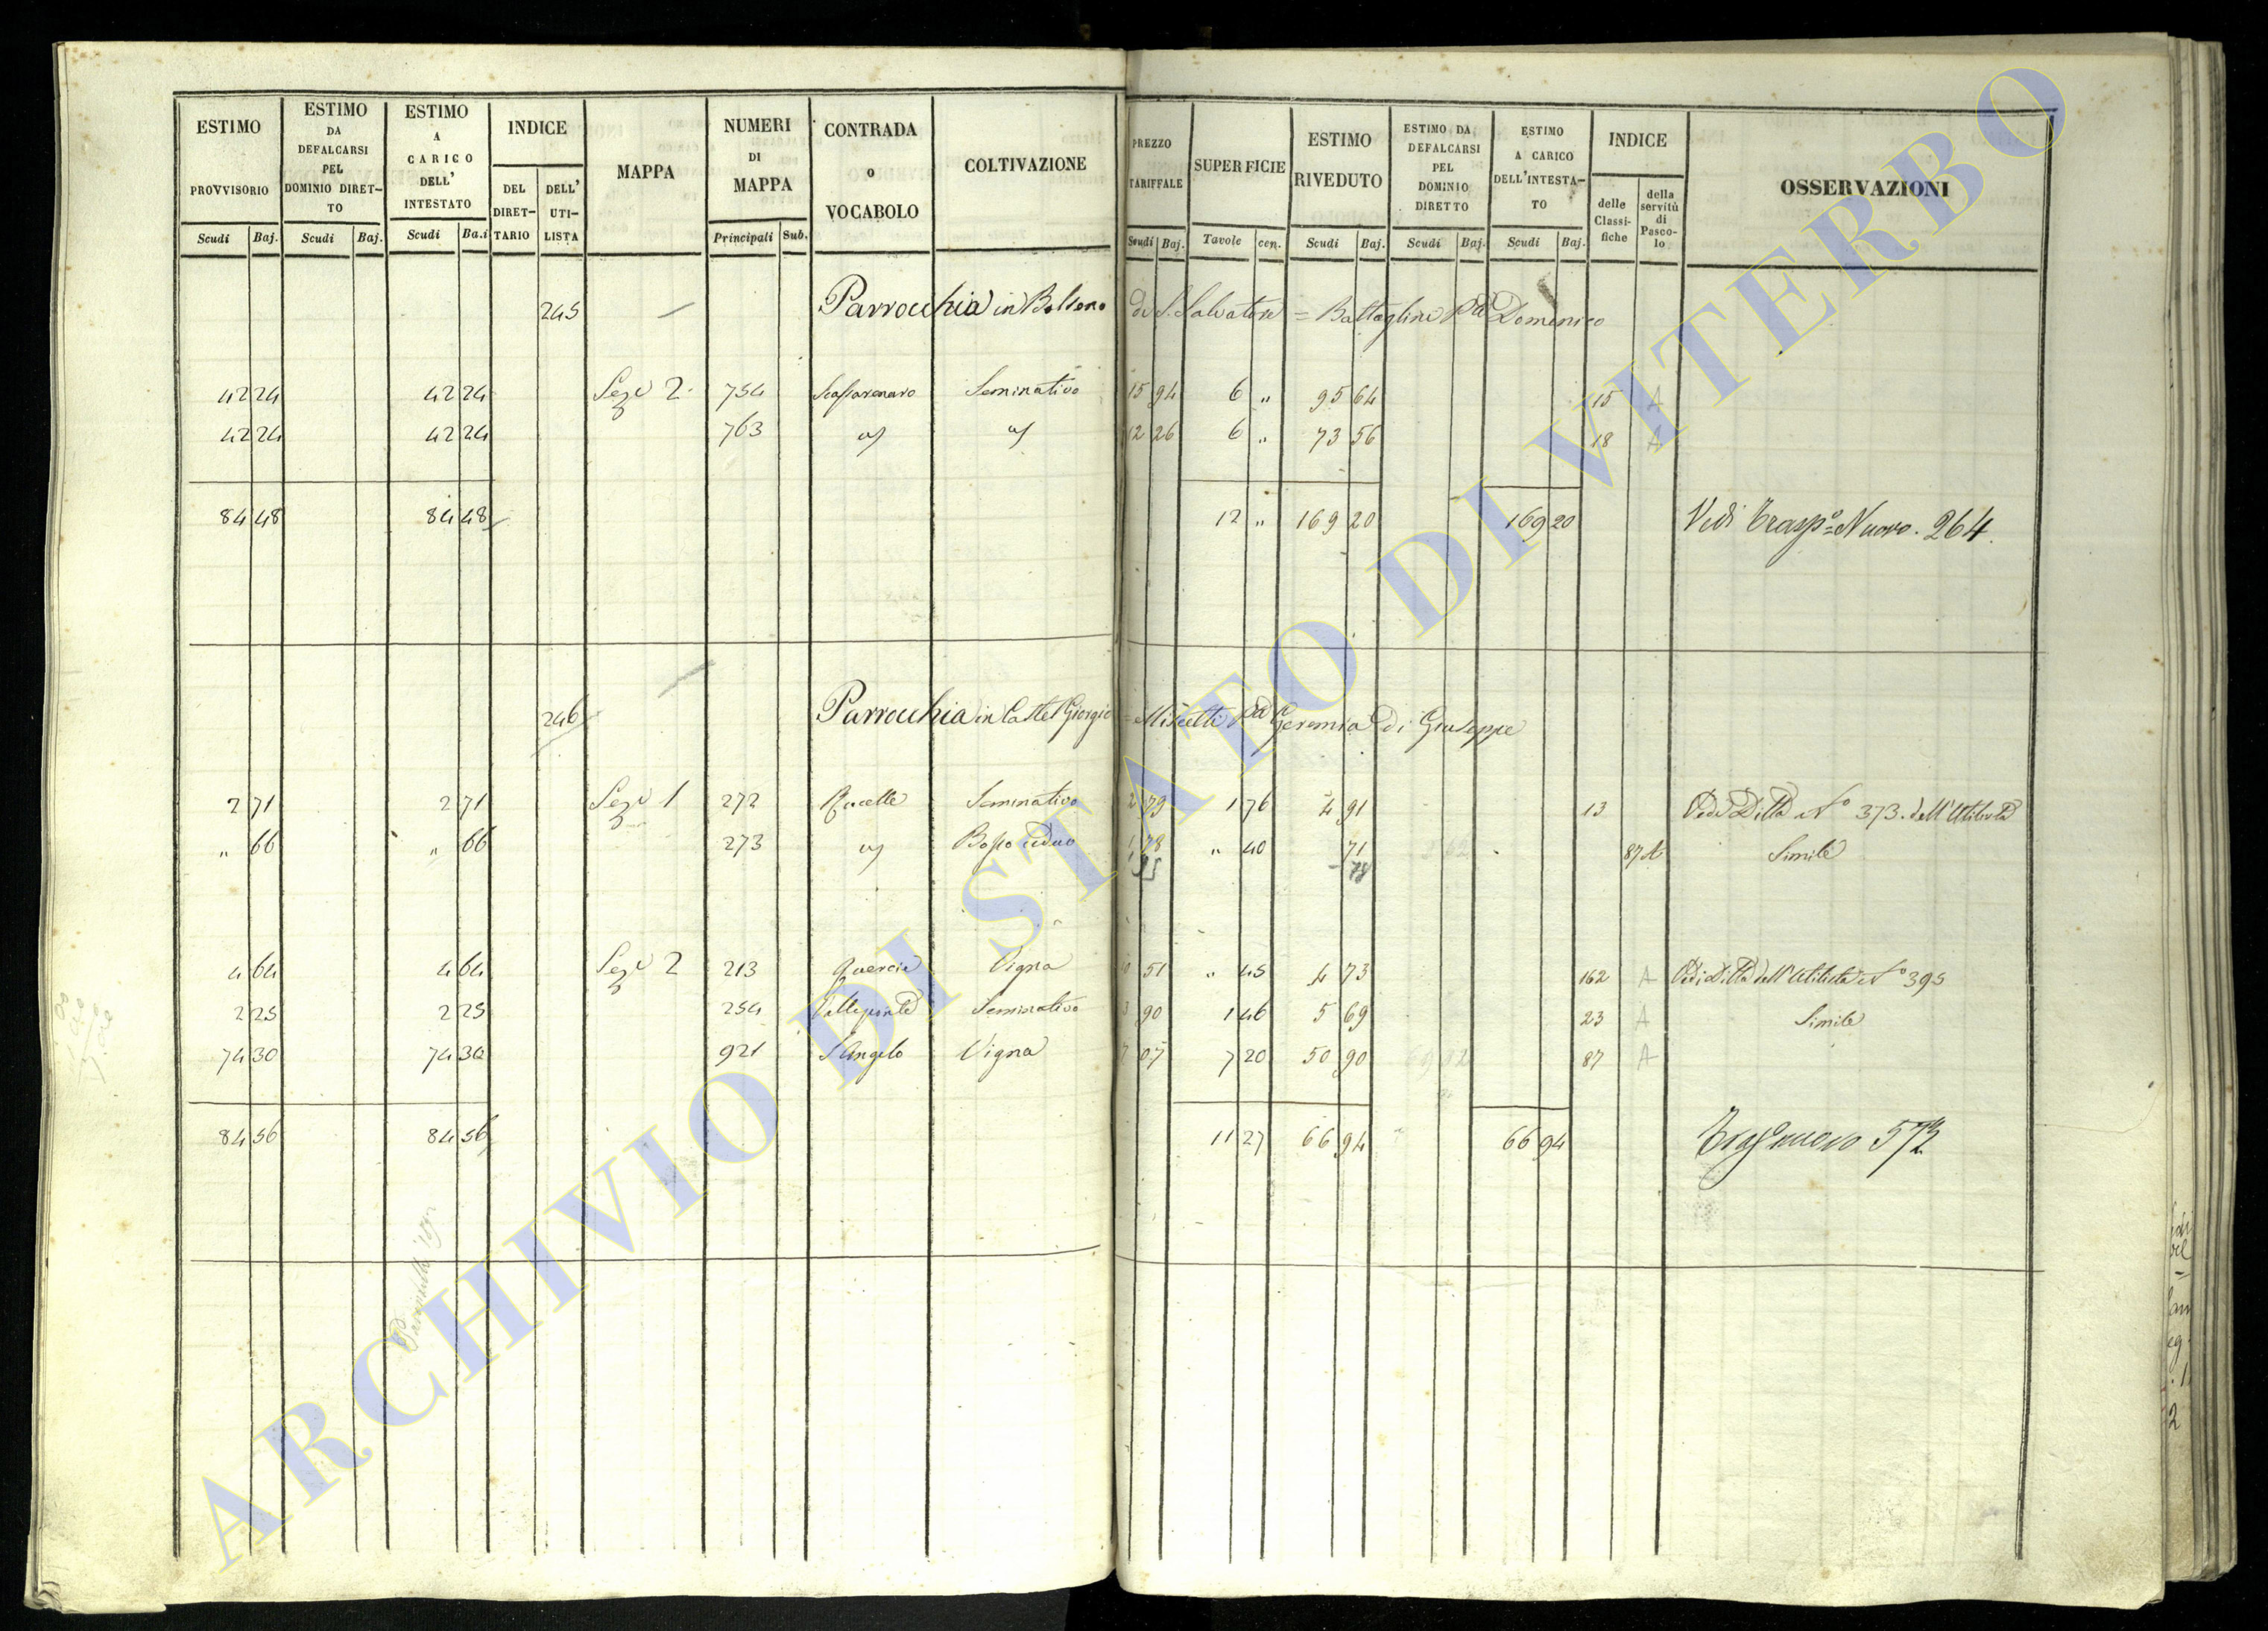 ESTIMO PROVVISORIO
ESTIMO DA DEFALCARSI PEL DOMINIO DIRET-TO
ESTIMO A CARICO DELL' INTESTATO
INDICE
DEL DIRET-TARIO
DELL' UTI-LISTA
MAPPA
NUMERI DI MAPPA
CONTRADA o VOCABOLO
COLTIVAZIONE
PREZZO TARIFFALE
SUPERFICIE
ESTIMO RIVEDUTO
ESTIMO DA DEFALCARSI PEL DOMINIO DIRETTO
ESTIMO A CARICO DELL'INTESTA-TO
INDICE
delle Classi-fiche
della servitù di Pasco-lo
OSSERVAZIONI
Scudi Baj. Scudi Baj. Scudi Ba.i Principali Sub. Scudi Baj. Tavole cen. Scudi Baj. Scudi Baj. Scudi Baj.
245 Parrocchia in Bolseno di S. Salvatore = Battaglini Domenico
42 24 42 24 Sez 2 754 Seminativo 15 94 6 " 95 64 15 A
42 24 42 24 763 12 26 6 " 73 56 18 A
84 48 84 48 12 " 169 20 169 20 Vedi Trasp.º Nuovo. 264.
246 Parrocchia in Castel Giorgio = Geremia di Giuseppe
2 71 2 71 Sez 1 272 Rucelle Seminativo 2 79 1 76 4 91 13 Vedi Ditta Nº 373. dell'Utilista
" 66 " 66 273 Bosco Ceduo 1 78 " 40 71 87 A Simile
4 64 4 64 Sez 2 213 Quercie Vigna 10 51 " 45 4 73 162 A Vedi Ditta dell'Utilista Nº 395
2 25 2 25 254 Seminativo 3 90 1 46 5 69 23 A Simile
74 30 74 30 921 S Angelo Vigna 7 07 7 20 50 90 87 A
84 56 84 56 11 27 66 94 66 94 nuovo 572
ARCHIVIO DI STATO DI VITERBO